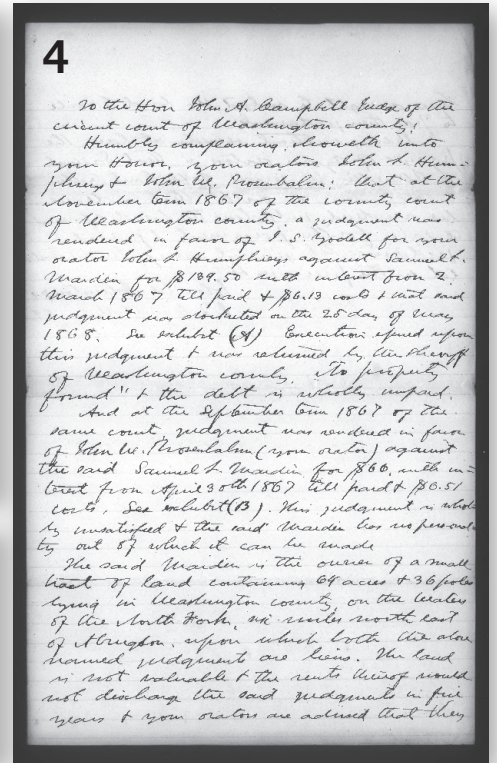 4
To the Hon John A. Campbell Judge of the
circuit court of Washington county!
Humbly complaining, showeth unto
your Honor, your orators John S. Hum-
phreys & John W. Rosenbalm: that at the
November term 1867 of the county court
of Washington county, a judgment was
rendered in favor of I. S. for your
orator John S. Humphreys against Samuel S.
Mardin for $139.50 with interest from 2
March 1867 till paid & $6.13 costs & that said
judgment was docketed on the 25 day of May
1868. See exhibit (A) Execution upon
this judgment & was returned by the sheriff
of Washington county. "No property
found" & the debt is wholly unpaid.
And at the September term 1867 of the
same court, judgment was rendered in favor
of John W. Rosenbalm (your orator) against
the said Samuel S. Mardin for $66, with in-
terest from April 30th 1867 till paid & $6.51
costs, See exhibit (B). This judgment is whol-
ly unsatisfied & the said Mardin has no personal-
ty out of which it can be made
The said Mardin is the owner of a small
tract of land containing 64 acres & 36 poles
lying in Washington county, on the waters
of the North Fork, six miles north east
of Abingdon, upon which both the above
named judgments are liens. The land
is not valuable & the rents thereof would
not discharge the said judgments in five
years & your orators are advised that they